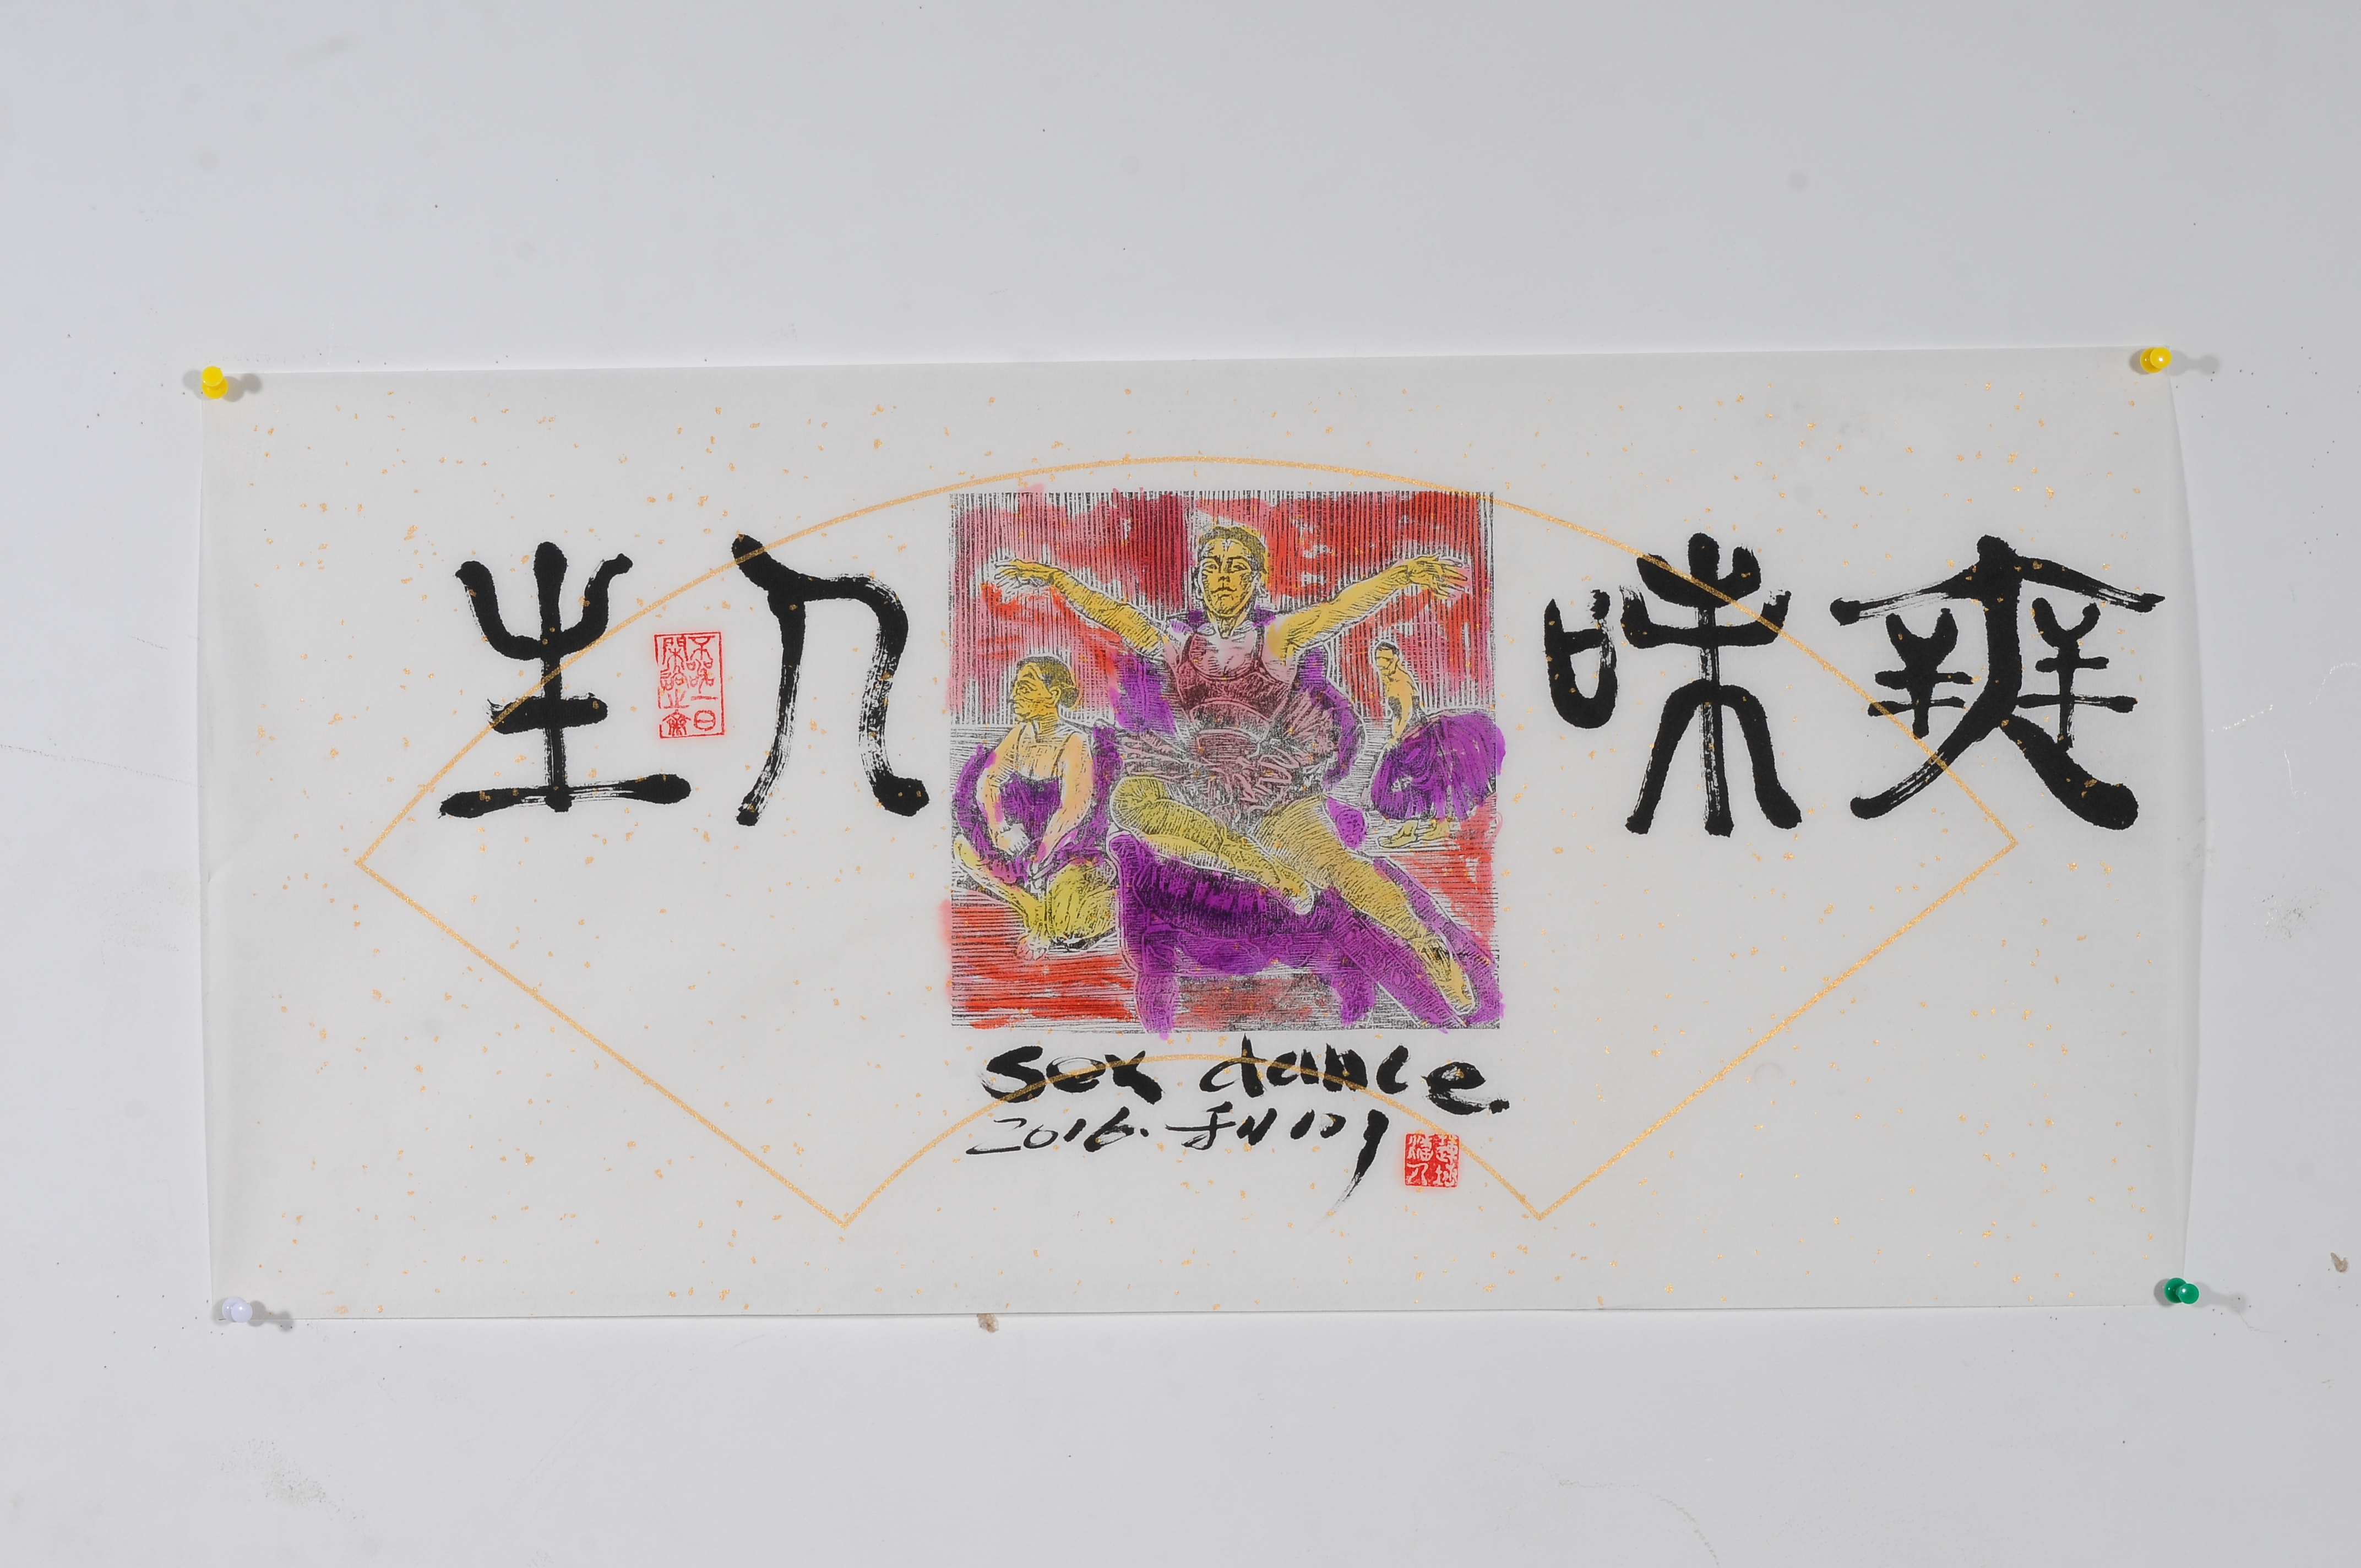 爽味人生
sex dance.
2016.